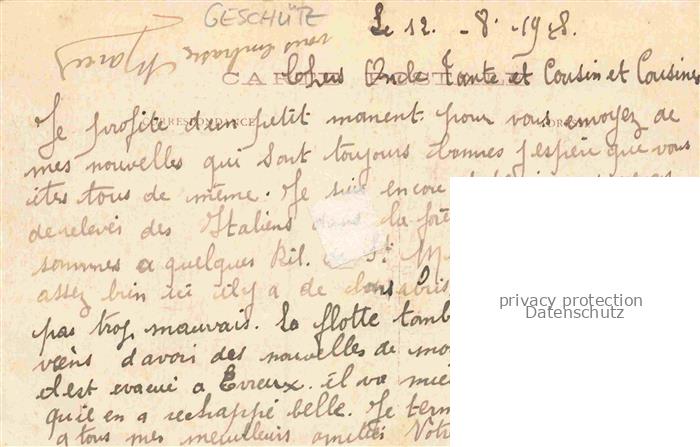 GESCHÜTZ
Le 12. - 8. - 1918.
vous embrasse Marcel
CARTE POSTALE
Chers Oncle Tante et Cousin et Cousines
CORRESPONDANCE
Je profite d'un petit moment pour vous envoyez de
mes nouvelles qui sont toujours bonnes j'espère que vous
êtes tous de même. Je suis encore
de relever des Italiens dans la forê
sommes a quelques Kil. de St. M
assez bien ici il y a de bons abris
pas trop mauvais. La flotte tomb
viens d'avoir des nouvelles de mo
el est evacué a Evreux. il va mie
qu'il en a rechappé belle. Je term
a tous mes meuilleurs amitiés Votr
privacy protection
Datenschutz